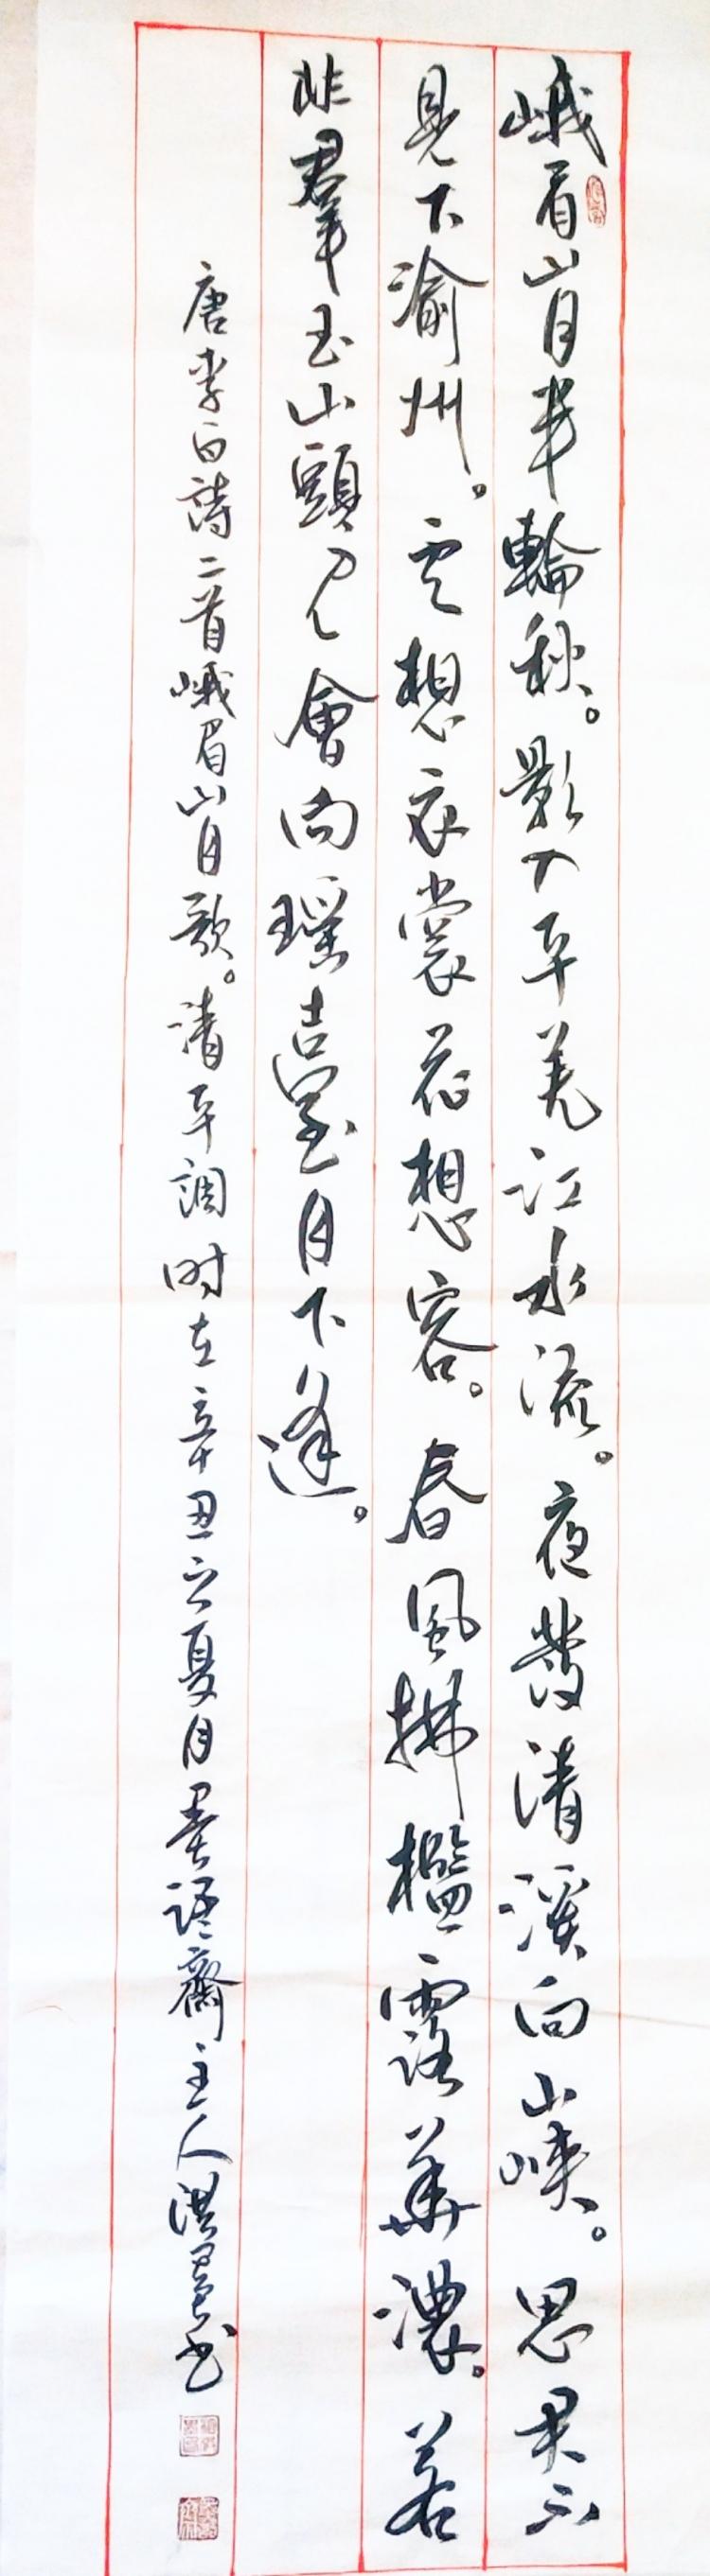 峨眉山月半輪秋。影入平羌江水流。夜發清溪向山峽。思君不
見下渝州。雲想衣裳花想容。春風拂檻露華濃。若
非羣玉山頭見會向瑤臺月下逢。
唐李白詩二首峨眉山月歌。清平調時在辛丑之夏月墨語齋主人洪墨書